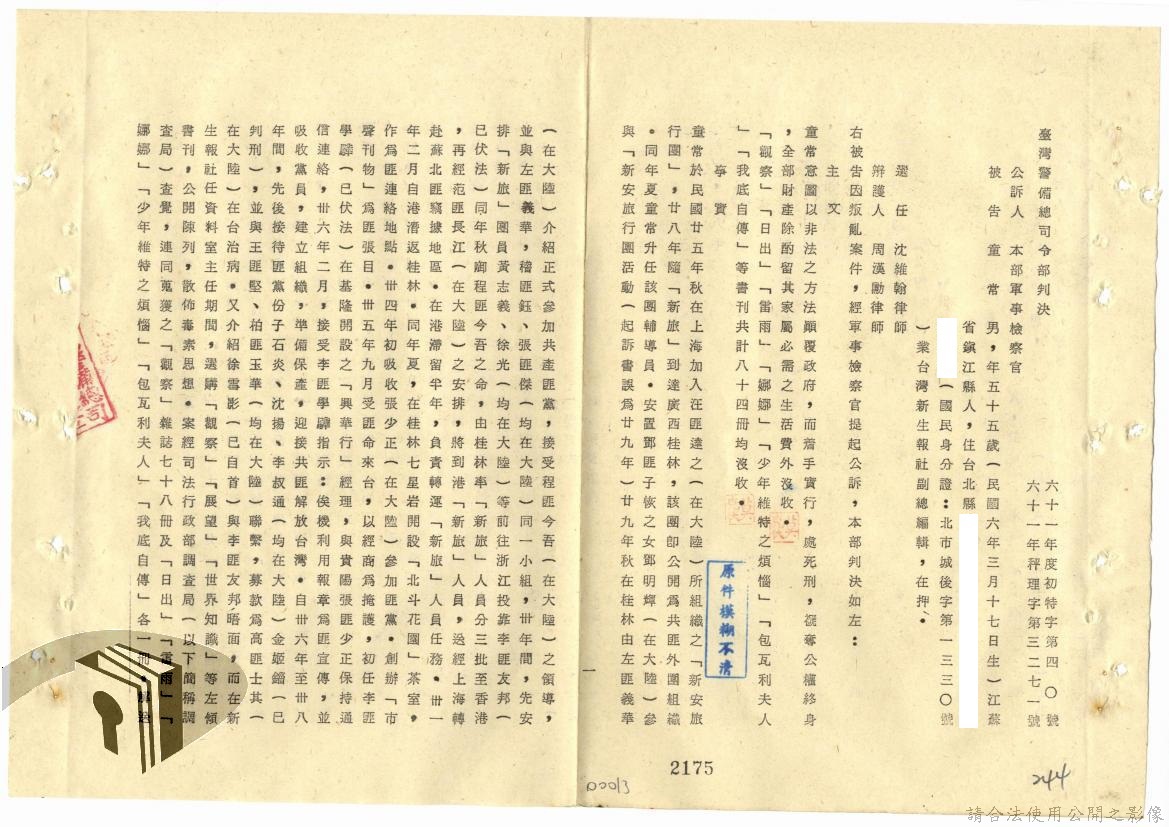 臺灣警備總司令部判決
六十一年度初特字第四〇號
六十一年秤理字第三二七一號
公訴人　本部軍事檢察官
被告　童常　男，年五十五歲（民國六年三月十七日生）江蘇
省鎮江縣人，住台北縣
（國民身分證：北市城後字第一三三〇號
）業台灣新生報社副總編輯，在押。
選任　沈維翰律師
辯護人　周漢勳律師
右被告因叛亂案件，經軍事檢察官提起公訴，本部判決如左：
主文
童常意圖以非法之方法顚覆政府，而着手實行，處死刑，褫奪公權終身
，全部財產除酌留其家屬必需之生活費外沒收。
「觀察」「日出」「雷雨」「娜娜」「少年維特之煩惱」「包瓦利夫人
」「我底自傳」等書刊共計八十四冊均沒收。
事實
童常於民國廿五年秋在上海加入汪匪達之（在大陸）所組織之「新安旅
行團」，廿八年隨「新旅」到達廣西桂林，該團卽公開爲共匪外圍組織
。同年夏童常升任該團輔導員。安置鄧匪子恢之女鄧明輝（在大陸）參
與「新安旅行團活動（起訴書誤爲廿九年）廿九年秋在桂林由左匪義華
原件模糊不清
一
（在大陸）介紹正式參加共產匪黨，接受程匪今吾（在大陸）之領導，
並與左匪義華，稽匪鈺、張匪傑（均在大陸）同一小組，卅年間，先安
排「新旅」團員黃志義、徐光（均在大陸）等前往浙江投靠李匪友邦（
已伏法）同年秋啣程匪今吾之命，由桂林率「新旅」人員分三批至香港
，再經范匪長江（在大陸）之安排，將到港「新旅」人員，送經上海轉
赴蘇北匪竊據地區。在港滯留半年，負責轉運「新旅」人員任務。卅一
年二月自港潛返桂林。同年夏，在桂林七星岩開設「北斗花園」茶室，
作爲匪連絡地點。卅四年初吸收張少正（在大陸）參加匪黨。創辦「市
聲刊物」爲匪張目。卅五年九月受匪命來台，以經商爲掩護，初任李匪
學驊（已伏法）在基隆開設之「興華行」經理，與貴陽張匪少正保持通
信連絡，卅六年二月，接受李匪學驊指示：俟機利用報章爲匪宣傳，並
吸收黨員，建立組織，準備保產，迎接共匪解放台灣。自卅六年至卅八
年間，先後接待匪黨份子石炎、沈揚、李叔通（均在大陸）金姬鎦（已
判刑），並與王匪堅、柏匪玉華（均在大陸）聯繫，募款爲高匪士其（
在大陸）在台治病。又介紹徐雪影（已自首）與李匪友邦晤面，而在新
生報社任資料室主任期間，選購「觀察」「展望」「世界知識」等左傾
書刊，公開陳列，散佈毒素思想。案經司法行政部調查局（以下簡稱調
查局）偵覺，連同蒐獲之「觀察」雜誌七十八冊及「日出」「雷雨」「
娜娜」「少年維特之煩惱」「包瓦利夫人」「我底自傳」各一冊。解送
2175
00013
244
請合法使用公開之影像